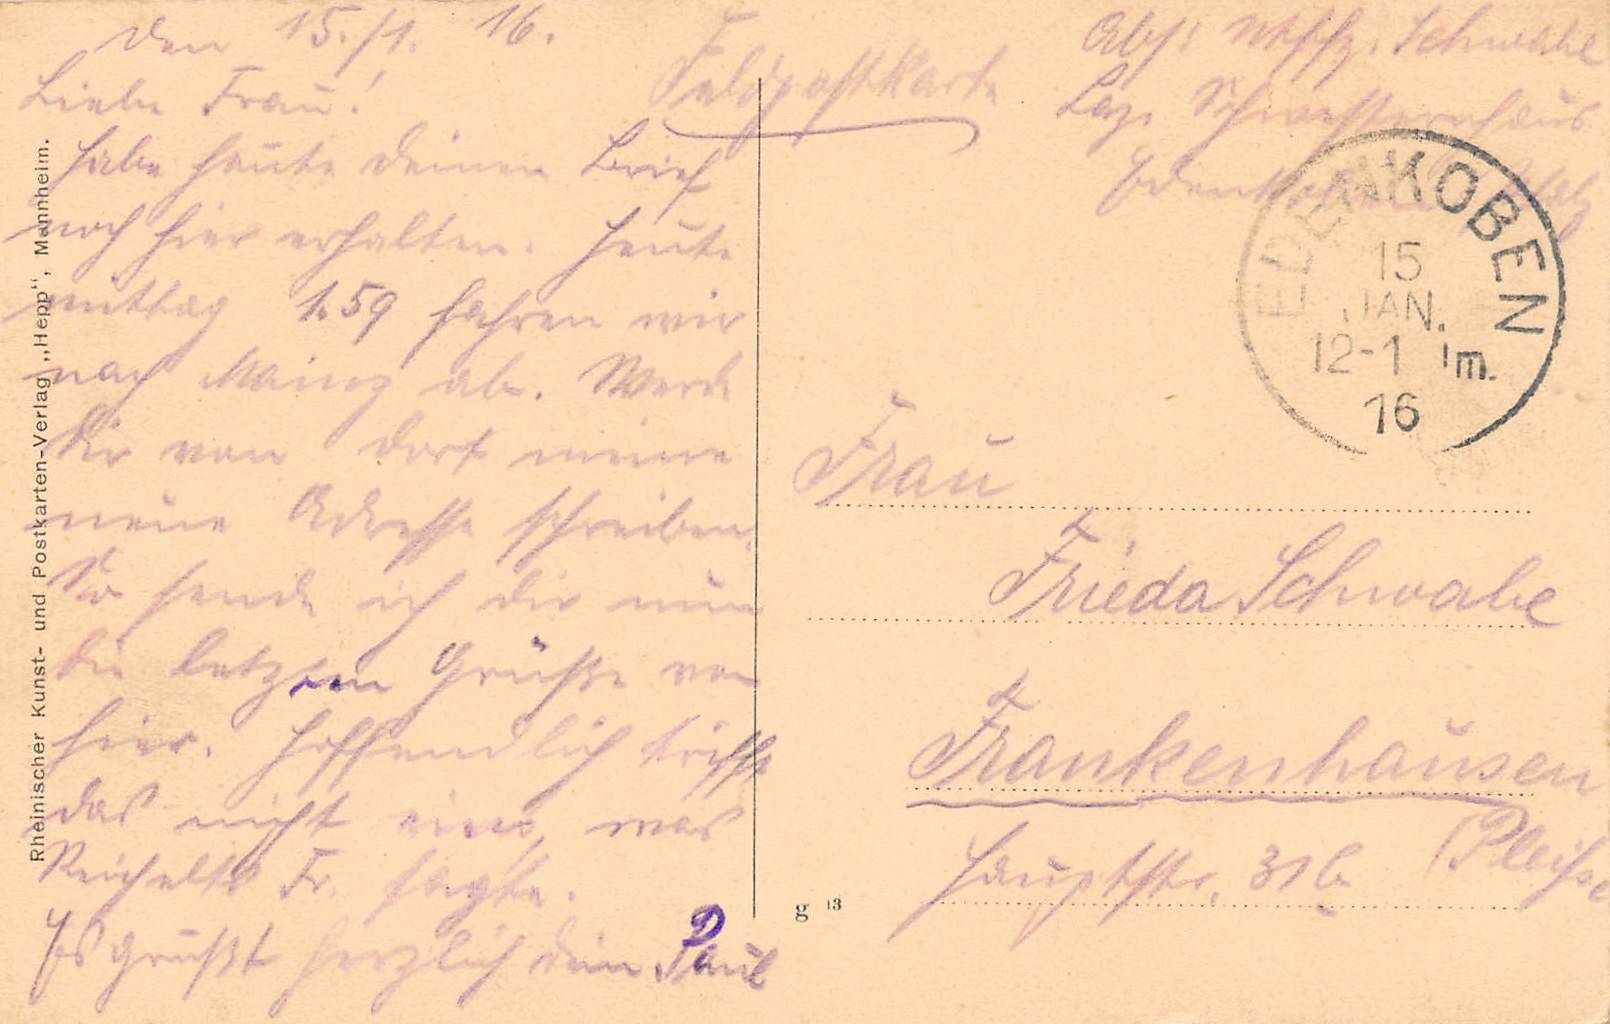 den 15./1. 16.
Liebe Frau!
Habe heute deinen Brief
noch hier erhalten. Heute
mittag 1.59 fahren wir
nach Mainz ab. Werde
dir von dort meine
neue Adresse schreiben.
So sende ich dir nun
die letzten Grüße von
hier. Hoffendlich trifft
das nicht ein, was
Reichelts Fr. sagte.
Es grüßt herzlich dein Paul
Feldpostkarte
Abs: Schwabe
Laz. Schwesternhaus
Edenkoben Pfalz
EDENKOBEN
15
JAN.
12-1 m.
16
Frau
Frieda Schwabe
Frankenhausen
(Pleiße
Hauptstr. 31b
Rheinischer Kunst- und Postkarten-Verlag „Hepp“, Mannheim.
g 13